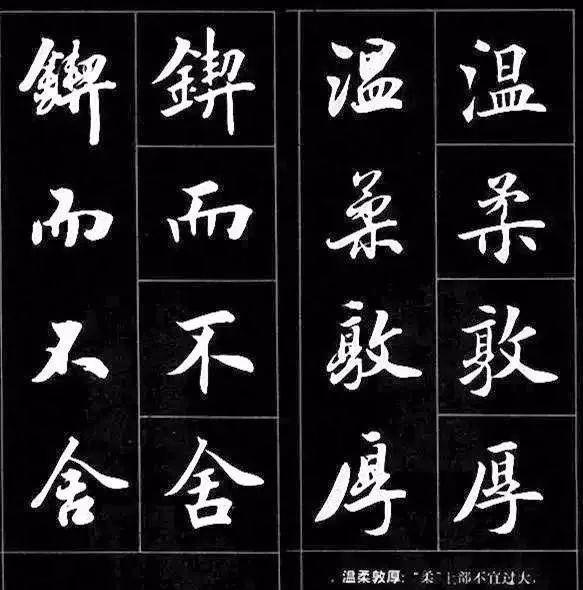 温柔敦厚
温柔敦厚
锲而不舍
锲而不舍
温柔敦厚:“柔”上部不宜过大.